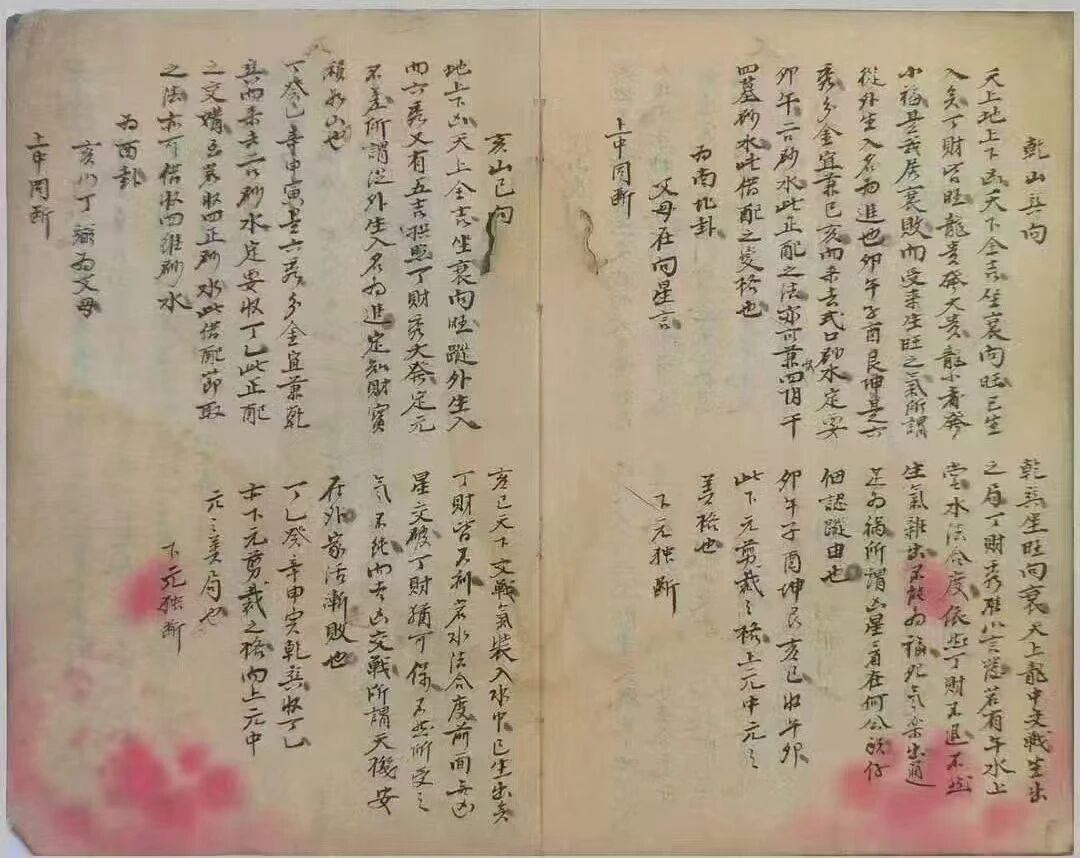 乾山巽向
天上地上下凶天下全吉生衰向旺已生
入矣丁財皆旺龍貴發大貴龍小者發
小福是我居衰敗而受來生旺之氣所謂
從外生入名為進也卯午子酉艮坤是六
秀多金宜兼巳亥而來去弍口砂水定要
卯午二宮砂水此正配之法亦可兼四阴干
四墓砂水此借配之变格也
為南北卦
父母在向星言
上中同断
乾巽生旺向衰天上龍中交戰生出
之局丁財秀准以言定若有午水上
堂水法合度依然丁財不退不然
生氣雜出不能為福死氣雜出适
足為禍所謂凶星看在何公頭仔
细認蹤由也
卯午子酉坤艮亥巳收午卯
此下元剪裁之格上元中元之
美格也
下元独断
亥山巳向
地上下凶天上全吉生衰向旺蹤外生入
而六秀又有五吉拱照丁財秀大發定元
不差所謂從外生入名為進定知財寶
積如山也
丁癸乙辛申寅是六秀多金宜兼乾
巽而來去二口砂水定要收丁乙此正配
之交媾若兼收四正砂水此借配即取
之法亦可借收四維砂水
為西卦
亥以丁 為父母
上中同断
亥巳天下交戰氣裝入水中已生出矣
丁財皆不利若水法合度前面無凶
星交破丁財猶可保不然所受之
氣不純內吉凶交戰所謂天機安
在外家活漸敗也
丁乙癸辛申寅乾巽收丁乙
亦下元剪裁之格內上元中
元之美局也
下元独断